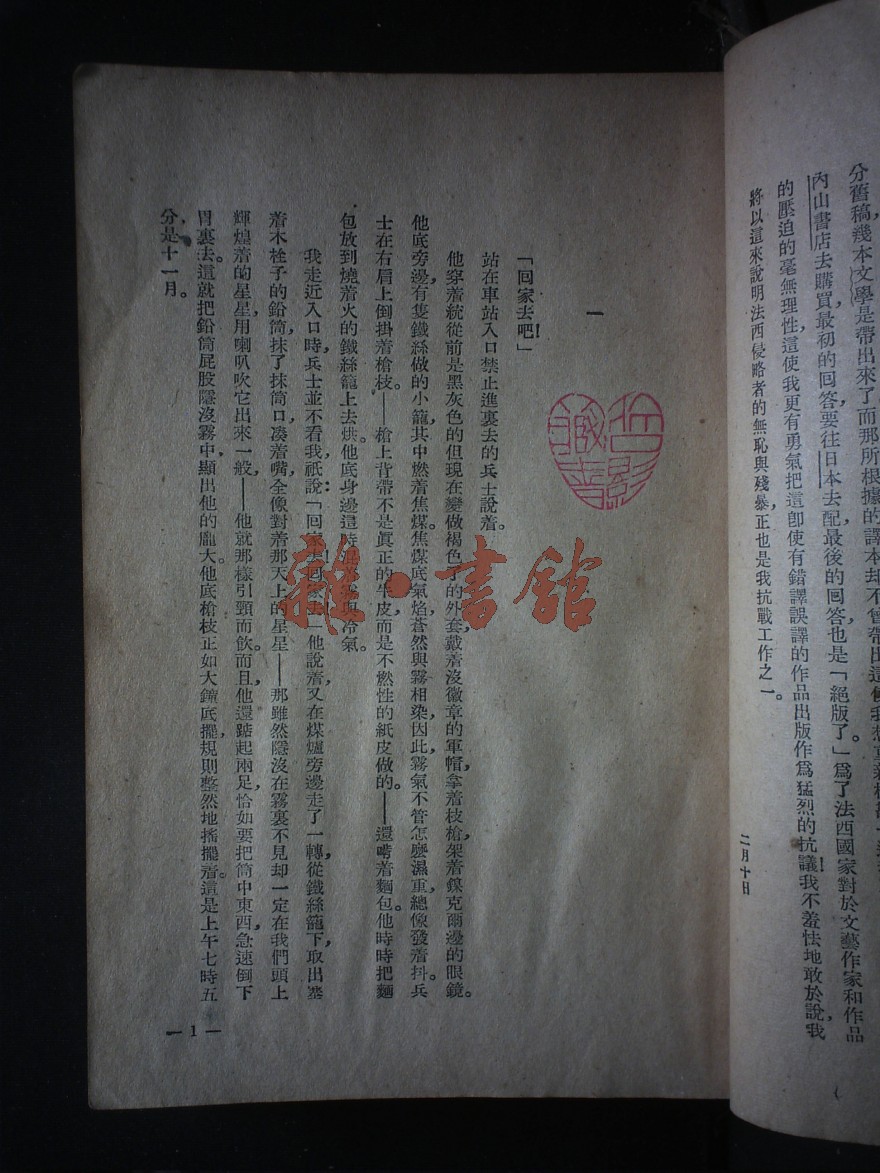 分舊稿幾本文學是帶出來了而那所根據的譯本却不曾帶出這使我想重新校
內山書店去購買最初的回答要往日本去配，最後的回答也是「絕版了。」爲了法西國家對於文藝作家和作品
的壓迫的毫無理性，這使我更有勇氣把這卽使有錯譯誤譯的作品出版作爲猛烈的抗議！我不羞怯地敢於說，我
將以這來說明法西侵略者的無恥與殘暴正也是我抗戰工作之一。
二月十日
一
「回家去吧！」
站在車站入口禁止進裏去的兵士說着。
他穿着統從前是黑灰色的但現在變做褐色了的外套，戴着沒徽章的軍帽，拿着枝槍，架着鎳克爾邊的眼鏡。
他底旁邊有隻鐵絲做的小籠，其中燃着焦煤。焦煤底氣焰蒼然與霧相染，因此霧氣不管怎麼濕重，總像發着抖。兵
士在右肩上倒掛着槍枝。——槍上背帶不是眞正的牛皮，而是不燃性的紙皮做的。——還嚼着麵包。他時時把麵
包放到燒着火的鐵絲籠上去烘。他底身邊這時與冷氣。
我走近入口時，兵士並不看我，祇說：「回家去！回家去！」他說着，又在煤爐旁邊走了一轉，從鐵絲籠下，取出塞
着木栓子的鉛筒，抹了抹筒口，湊着嘴，全像對着那天上的星星——那雖然隱沒在霧裏不見，却一定在我們頭上
輝煌着的星星，用喇叭吹它出來一般，——他就那樣引頸而飲。而且，他還踮起兩足，恰如要把筒中東西，急速倒下
胃裏去。這就把鉛筒屁股隱沒霧中，顯出他的龐大。他底槍枝正如大鐘底擺，規則整然地搖擺着。這是上午七時五
分，是十一月。
— 1 —
雜·書館